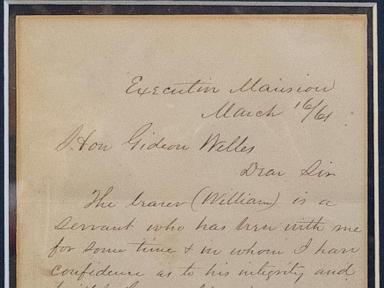 Executive Mansion
March 16/61
Hon Gideon Welles
Dear Sir
The bearer (William) is a
servant who has been with me
for some time & in whom I have
confidence as to his integrity and